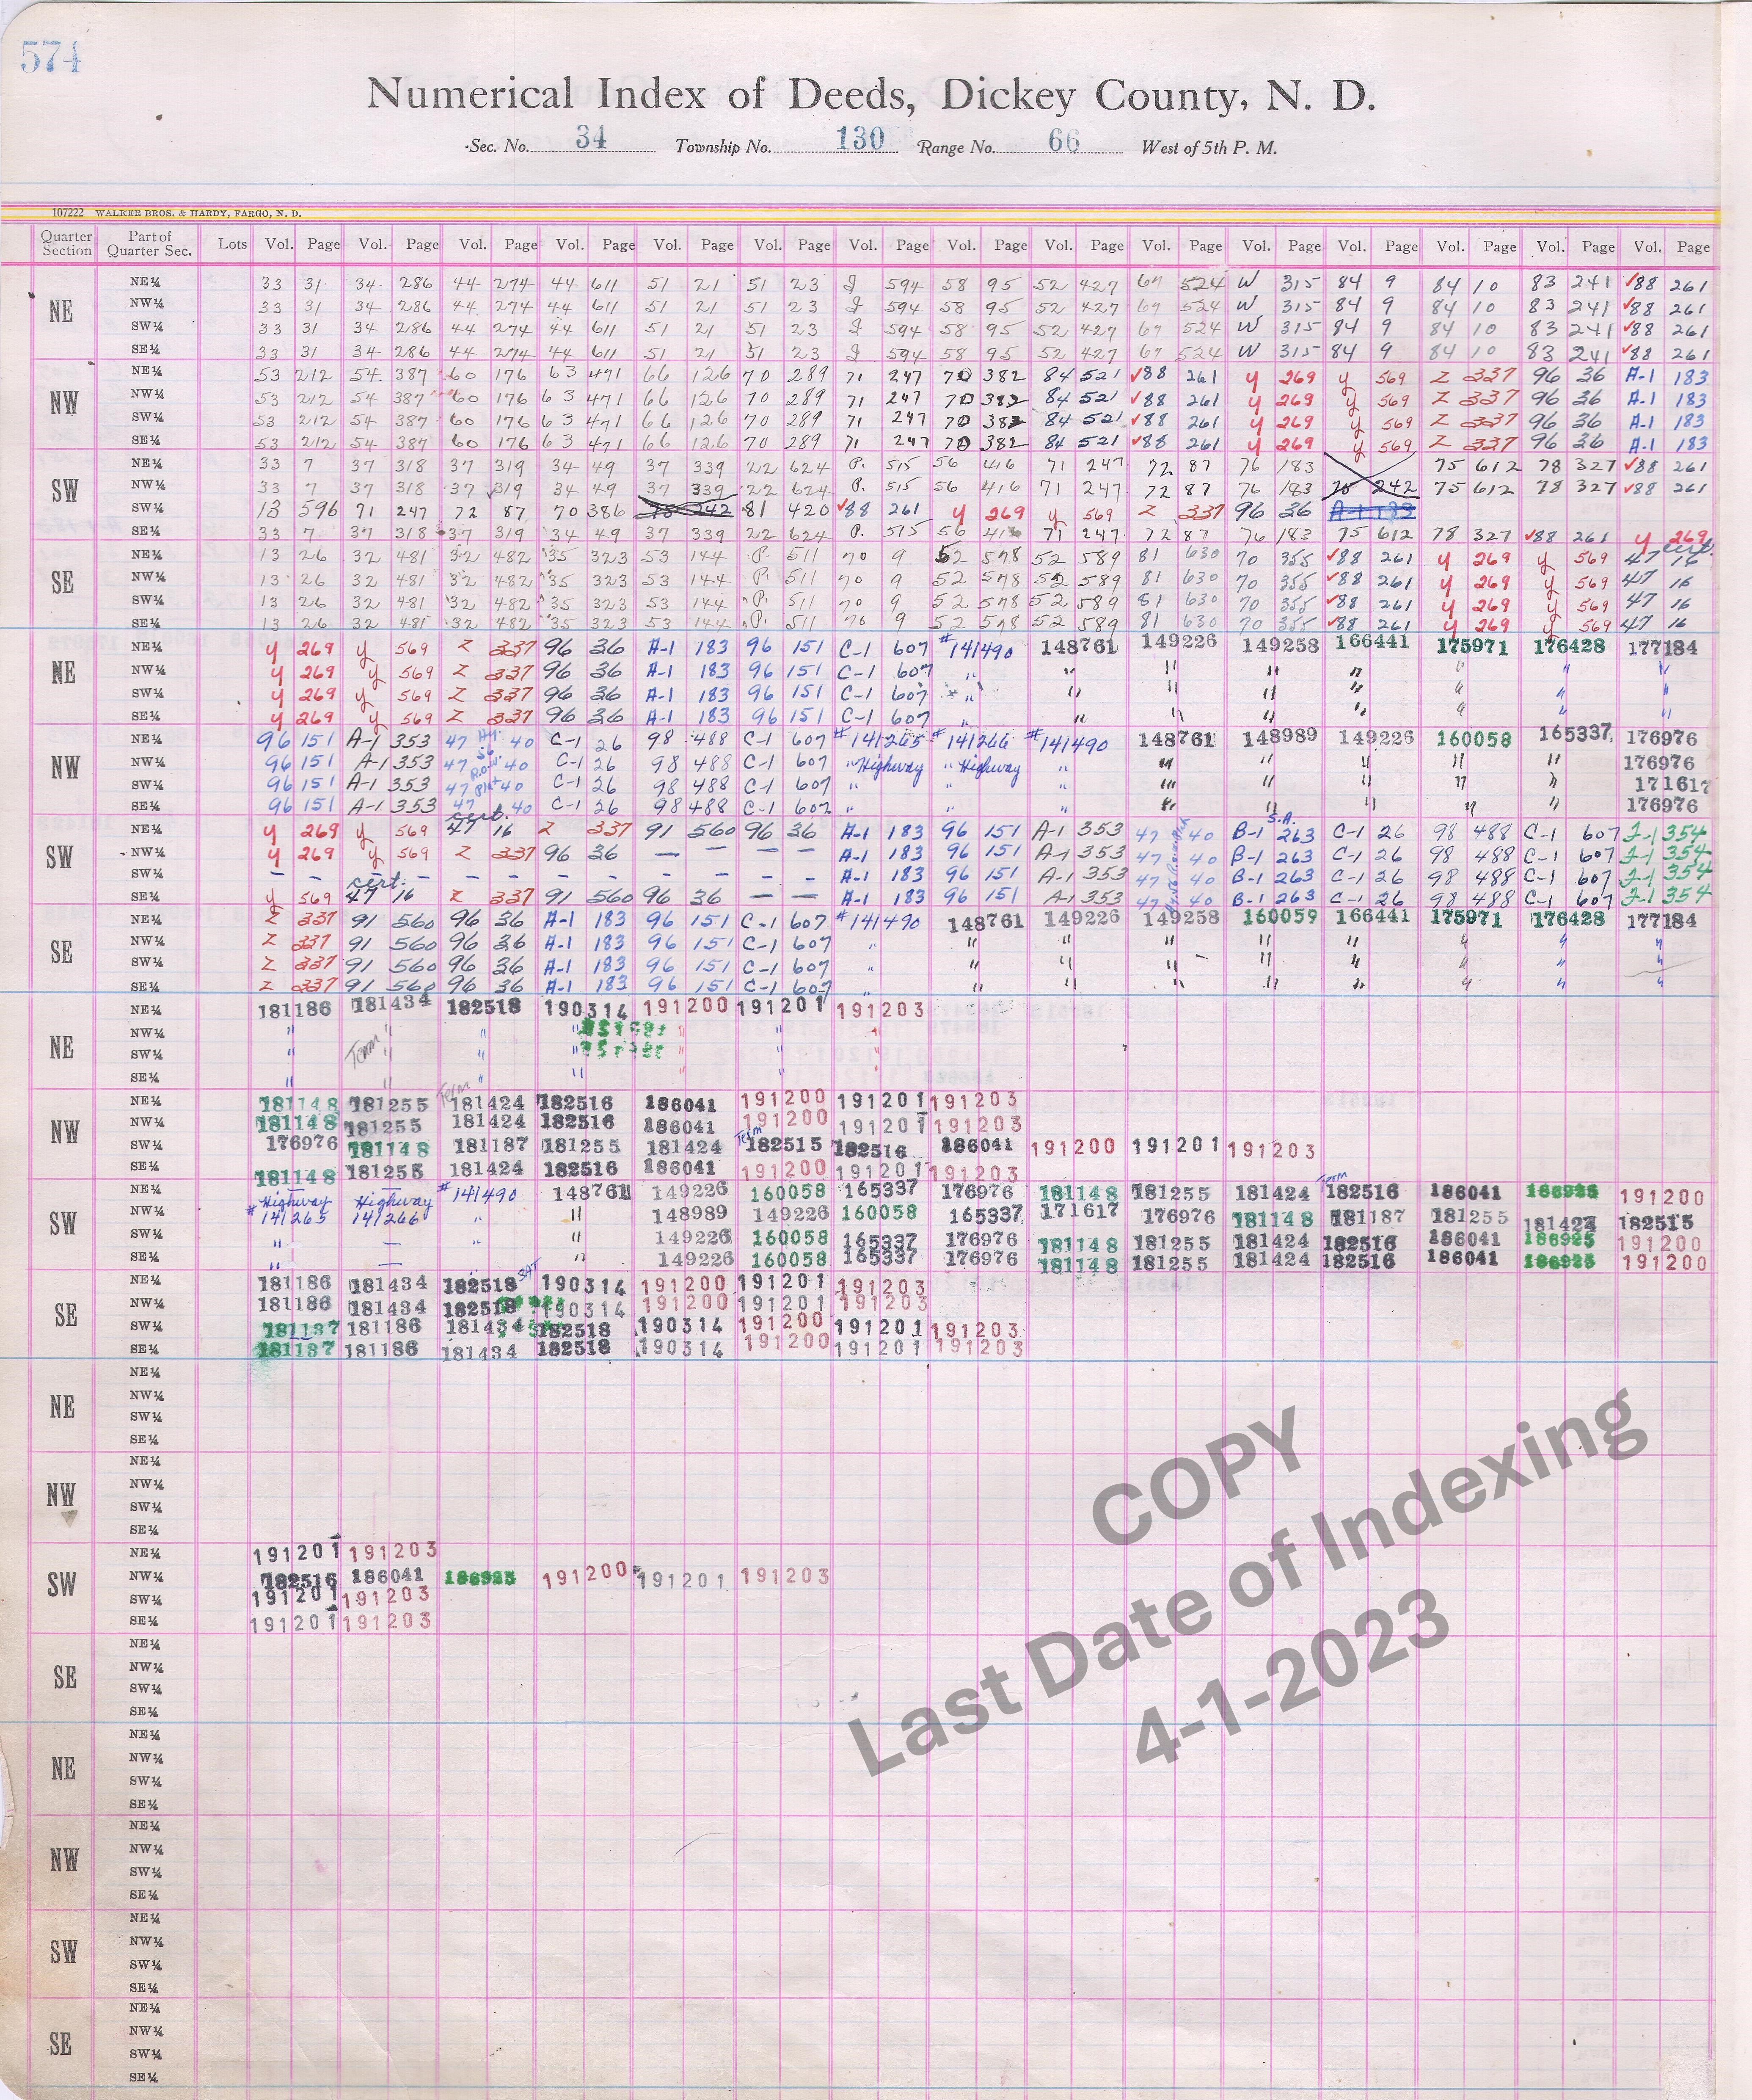 574
Numerical Index of Deeds, Dickey County, N. D.
Sec. No. 34 Township No. 130 Range No. 66 West of 5th P. M.
107222 WALKER BROS. & HARDY, FARGO, N. D.
Quarter Section Part of Quarter Sec. Lots Vol. Page Vol. Page Vol. Page Vol. Page Vol. Page Vol. Page Vol. Page Vol. Page Vol. Page Vol. Page Vol. Page Vol. Page Vol. Page Vol. Page Vol. Page
NE NE¼ 33 31 34 286 44 274 44 611 51 21 51 23 594 58 95 52 427 67 524 W 315 84 9 84 10 83 241 ✓88 261
NW¼ 33 31 34 286 44 274 44 611 51 21 51 23 594 58 95 52 427 67 524 W 315 84 9 84 10 83 241 ✓88 261
SW¼ 33 31 34 286 44 274 44 611 51 21 51 23 594 58 95 52 427 67 524 W 315 84 9 84 10 83 241 ✓88 261
SE¼ 33 31 34 286 44 274 44 611 51 21 51 23 594 58 95 52 427 67 524 W 315 84 9 84 10 83 241 ✓88 261
NW NE¼ 53 212 54 387 60 176 63 471 66 126 70 289 71 247 70 382 84 521 ✓88 261 Y 269 Y 569 Z 337 96 36 A-1 183
NW¼ 53 212 54 387 60 176 63 471 66 126 70 289 71 247 70 382 84 521 ✓88 261 Y 269 Y 569 Z 337 96 36 A-1 183
SW¼ 53 212 54 387 60 176 63 471 66 126 70 289 71 247 70 382 84 521 ✓88 261 Y 269 Y 569 Z 337 96 36 A-1 183
SE¼ 53 212 54 387 60 176 63 471 66 126 70 289 71 247 70 382 84 521 ✓88 261 Y 269 Y 569 Z 337 96 36 A-1 183
SW NE¼ 33 7 37 318 37 319 34 49 37 339 22 624 P. 515 56 416 71 247 72 87 76 183 75 612 78 327 ✓88 261
NW¼ 33 7 37 318 37 319 34 49 37 339 22 624 P. 515 56 416 71 247 72 87 76 183 75 242 75 612 78 327 ✓88 261
SW¼ 13 596 71 247 72 87 70 386 75 242 81 420 ✓88 261 Y 269 Y 569 Z 337 96 36 A-1 183
SE¼ 33 7 37 318 37 319 34 49 37 339 22 624 P. 515 56 416 71 247 72 87 76 183 75 612 78 327 ✓88 261 Y 269
SE NE¼ 13 26 32 481 32 482 35 323 53 144 P. 511 70 9 52 578 52 589 81 630 70 355 ✓88 261 Y 269 Y 569 cert. 47 16
NW¼ 13 26 32 481 32 482 35 323 53 144 P. 511 70 9 52 578 52 589 81 630 70 355 ✓88 261 Y 269 Y 569 47 16
SW¼ 13 26 32 481 32 482 35 323 53 144 P. 511 70 9 52 578 52 589 81 630 70 355 ✓88 261 Y 269 Y 569 47 16
SE¼ 13 26 32 481 32 482 35 323 53 144 P. 511 70 9 52 578 52 589 81 630 70 355 ✓88 261 Y 269 Y 569 47 16
NE NE¼ Y 269 Y 569 Z 337 96 36 A-1 183 96 151 C-1 607 #141490 148761 149226 149258 166441 175971 176428 177184
NW¼ Y 269 Y 569 Z 337 96 36 A-1 183 96 151 C-1 607 " " " " " " " "
SW¼ Y 269 Y 569 Z 337 96 36 A-1 183 96 151 C-1 607 " " " " " " " "
SE¼ Y 269 Y 569 Z 337 96 36 A-1 183 96 151 C-1 607 " " " " " " " "
NW NE¼ 96 151 A-1 353 47 40 C-1 26 98 488 C-1 607 #141265 #141266 #141490 148761 148989 149226 160058 165337 176976
NW¼ 96 151 A-1 353 47 40 C-1 26 98 488 C-1 607 " Highway " Highway " " " " " " 176976
SW¼ 96 151 A-1 353 47 40 C-1 26 98 488 C-1 607 " " " " " " " " 171617
SE¼ 96 151 A-1 353 47 40 C-1 26 98 488 C-1 607 " " " " " " " " 176976
SW NE¼ Y 269 Y 569 cert. 47 16 Z 337 91 560 96 36 A-1 183 96 151 A-1 353 47 40 S.A. B-1 263 C-1 26 98 488 C-1 607 F-1 354
NW¼ Y 269 Y 569 Z 337 96 36 — — — — A-1 183 96 151 A-1 353 47 40 B-1 263 C-1 26 98 488 C-1 607 F-1 354
SW¼ — — — — — — — — — — — — A-1 183 96 151 A-1 353 47 40 B-1 263 C-1 26 98 488 C-1 607 F-1 354
SE¼ Y 569 cert. 47 16 Z 337 91 560 96 36 — — A-1 183 96 151 A-1 353 47 40 B-1 263 C-1 26 98 488 C-1 607 F-1 354
SE NE¼ Z 337 91 560 96 36 A-1 183 96 151 C-1 607 #141490 148761 149226 149258 160059 166441 175971 176428 177184
NW¼ Z 337 91 560 96 36 A-1 183 96 151 C-1 607 " " " " " " " " "
SW¼ Z 337 91 560 96 36 A-1 183 96 151 C-1 607 " " " " " " " " "
SE¼ Z 337 91 560 96 36 A-1 183 96 151 C-1 607 " " " " " " " " "
NE NE¼ 181186 181434 182518 190314 191200 191201 191203
NW¼ " " " " " " "
SW¼ " Term " " " " " "
SE¼ " " " " " " "
NW NE¼ 181148 181255 Term 181424 182516 186041 191200 191201 191203
NW¼ 181148 181255 181424 182516 186041 191200 191201 191203
SW¼ 176976 181148 181187 181255 181424 Term 182515 182516 186041 191200 191201 191203
SE¼ 181148 181255 181424 182516 186041 191200 191201 191203
SW NE¼ Highway Highway #141490 148761 149226 160058 165337 176976 181148 181255 181424 Term 182516 186041 186925 191200
NW¼ #141265 141266 " " 148989 149226 160058 165337 171617 176976 181148 181187 181255 181424 182515
SW¼ " — " " 149226 160058 165337 176976 181148 181255 181424 182516 186041 186925 191200
SE¼ " — " 149226 160058 165337 176976 181148 181255 181424 182516 186041 186925 191200
SE NE¼ 181186 181434 182518 SAT 190314 191200 191201 191203
NW¼ 181186 181434 182518 190314 191200 191201 191203
SW¼ 181187 181186 181434 182518 190314 191200 191201 191203
SE¼ 181187 181186 181434 182518 190314 191200 191201 191203
NE NE¼
NW¼
SW¼
SE¼
NW NE¼
NW¼
SW¼
SE¼
SW NE¼ 191201 191203
NW¼ 182516 186041 186925 191200 191201 191203
SW¼ 191201 191203
SE¼ 191201 191203
SE NE¼
NW¼
SW¼
SE¼
NE NE¼
NW¼
SW¼
SE¼
NW NE¼
NW¼
SW¼
SE¼
SW NE¼
NW¼
SW¼
SE¼
SE NE¼
NW¼
SW¼
SE¼
COPY
Last Date of Indexing
4-1-2023